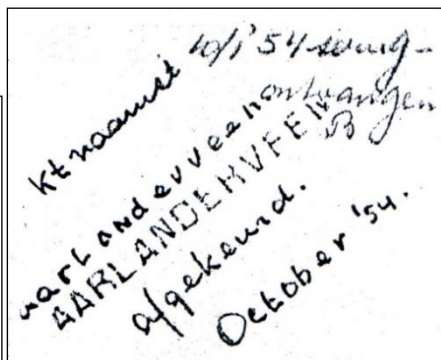 kt naamst
10/1 '54 terug-
ontvangen
B
aarlanderveen
AARLANDERVEEN
afgekeurd.
October '54.